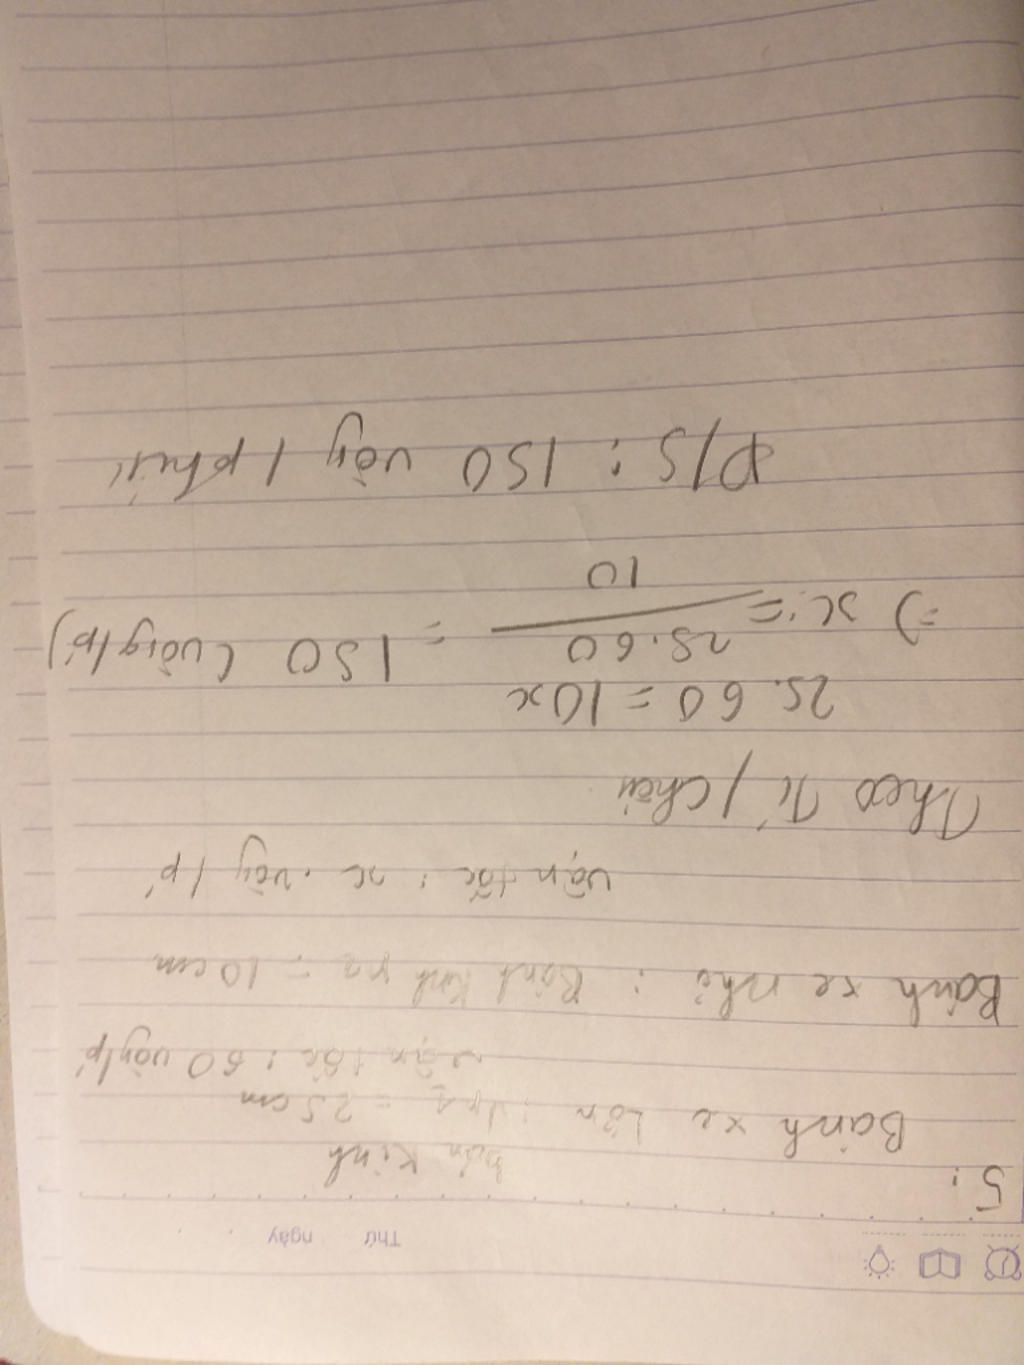 Thứ ngày
5:
bán kính
Bánh xe lớn : = 25cm
vận tốc : 60 vòng/p'
Bánh xe nhỏ : Bánh kính = 10cm
vận tốc : x vòng /p'
Theo Tỉ / chéo
25.60 = 10x
=> x = 25.60 / 10 = 150 (vòng/p')
Đ/S : 150 vòng / phút